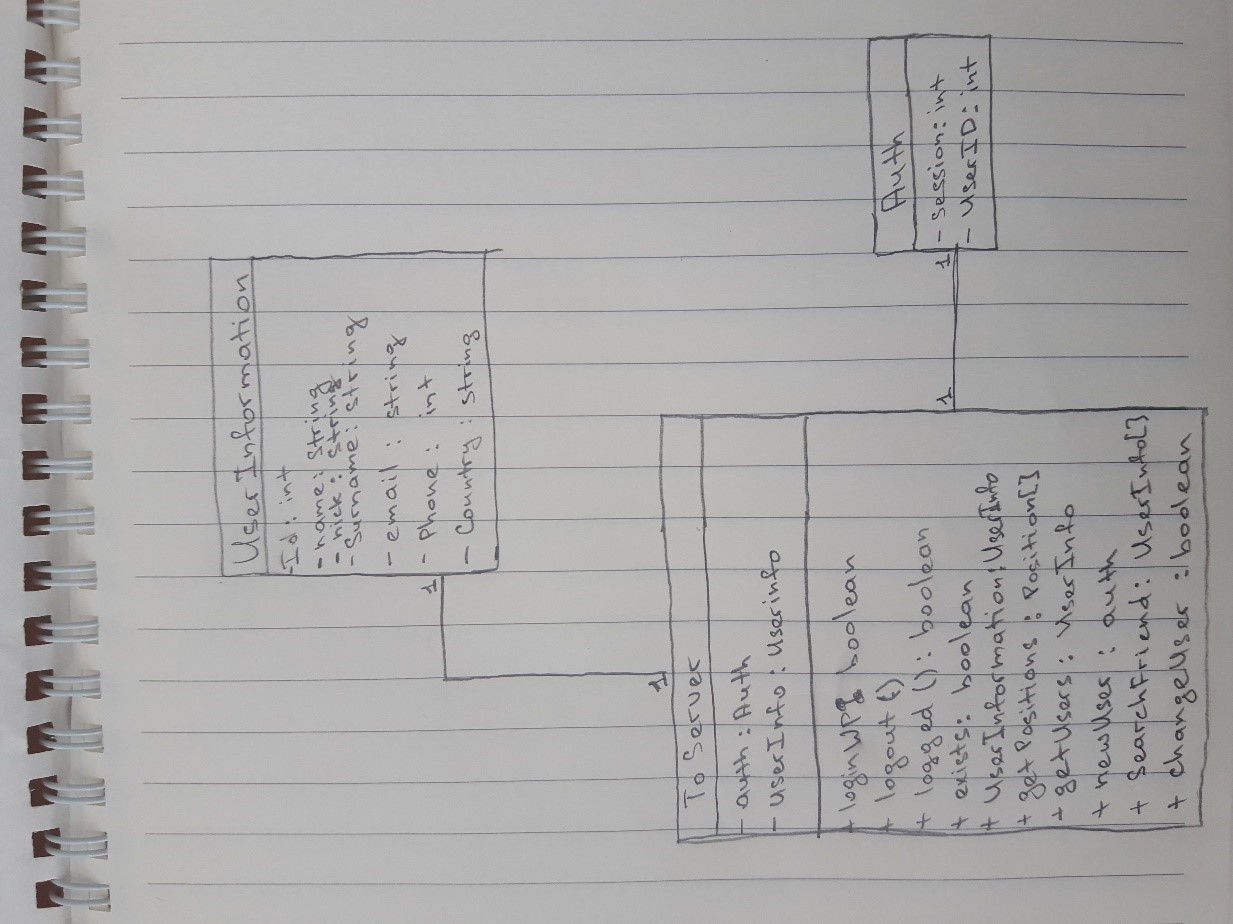 User Information
-Id: int
- name: String
- nick: String
- Surname: String
- email : string
- Phone : int
- Country : string
1
1
To Server
- auth : Auth
- userInfo : Userinfo
+ boolean
+ logout ()
+ logged () : boolean
+ exists : boolean
+ UserInformation : UserInfo
+ getPositions : Position[]
+ getUsers : UserInfo
+ newUser : auth
+ SearchFriend : UserInfo[]
+ changeUser : boolean
1
1
Auth
- session : int
- UserID : int